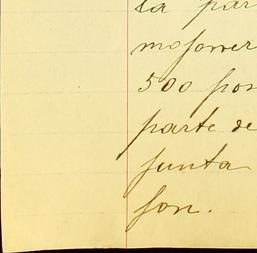 la par
moforrer
500 for
parte de
junta
fon.